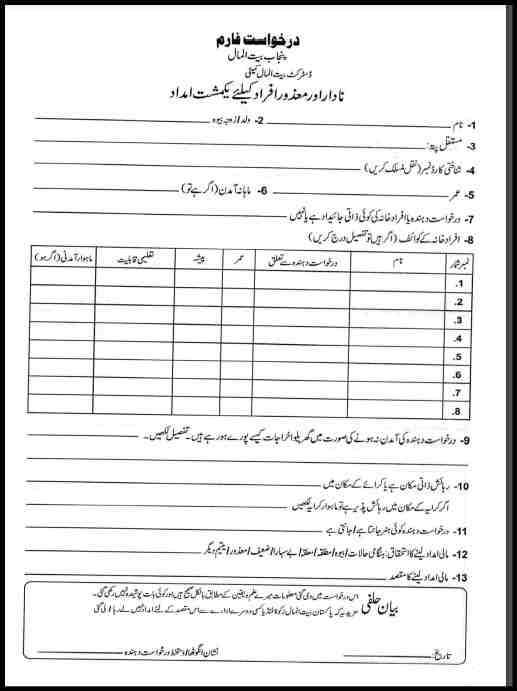 درخواست فارم
پنجاب بیت المال
ڈسٹرکٹ بیت المال کمیٹی
نادار اور معذور افراد کیلئے یکمشت امداد
1- نام 2- ولد / زوجہ بیوہ
3- مستقل پتہ:
4- شناختی کارڈ نمبر (نقل منسلک کریں)
5- عمر 6- ماہانہ آمدن (اگر ہے تو)
7- درخواست دہندہ یا افراد خانہ کی کوئی ذاتی جائیداد ہے یا نہیں
8- افراد خانہ کے کوائف (اگر ہیں تو تفصیل درج کریں)
نمبر شمار نام درخواست دہندہ سے تعلق عمر پیشہ تعلیمی قابلیت ماہوار آمدنی (اگر ہو)
1.
2.
3.
4.
5.
6.
7.
8.
9- درخواست دہندہ کی آمدن نہ ہونے کی صورت میں گھریلو اخراجات کیسے پورے ہو رہے ہیں۔ تفصیل لکھیں۔
10- رہائش ذاتی مکان ہے یا کرائے کے مکان میں
اگر کرایہ کے مکان میں رہائش پذیر ہے تو ماہوار کرایہ لکھیں
11- درخواست دہندہ کوئی ہنر جانتا ہے / جانتی ہے
12- مالی امداد لینے کا استحقاق: ہنگامی حالات / بیوہ / مطلقہ / معلقہ / بے سہارا / ضعیف / معذور / یتیم دیگر
13- مالی امداد لینے کا مقصد
بیان حلفی اس درخواست میں دی گئی معلومات میرے علم و یقین کے مطابق بالکل صحیح ہیں اور کوئی بات پوشیدہ نہیں رکھی گئی۔
مزید یہ کہ پاکستان بیت المال زکوٰۃ فنڈ یا کسی دوسرے ادارے سے اس مقصد کے لئے امداد نہیں لے رہا / لی گئی
تاریخ: نشان انگوٹھا / دستخط درخواست دہندہ